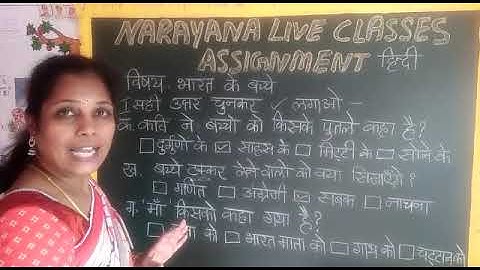 NARAYANA LIVE CLASSES
ASSIGNMENT हिंदी
विषय - भारत के बच्चे
I. सही उत्तर चुनकर ✓ लगाओ -
क. कवि ने बच्चों को किसके पुतले कहा है?
दुर्गुणों के ☑ साहस के □ मिट्टी के □ सोने के
ख. बच्चे टक्कर लेने वालों को क्या सिखाएँगे?
□ गणित □ अंग्रेजी ☑ सबक □ नाचना
ग. 'माँ' किसको कहा गया है?
□ को □ भारत माता को □ गाय को □ चट्टान को